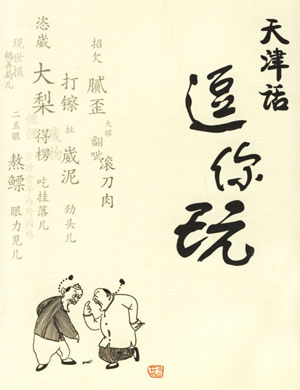 天津话
逗你玩
招欠
腻歪
翻呲
滚刀肉
打镲
崴泥
劲头儿
恣崴
大梨
得楞
吃挂落儿
现世报
胡弄局儿
二五眼
熬鳔
眼力见儿